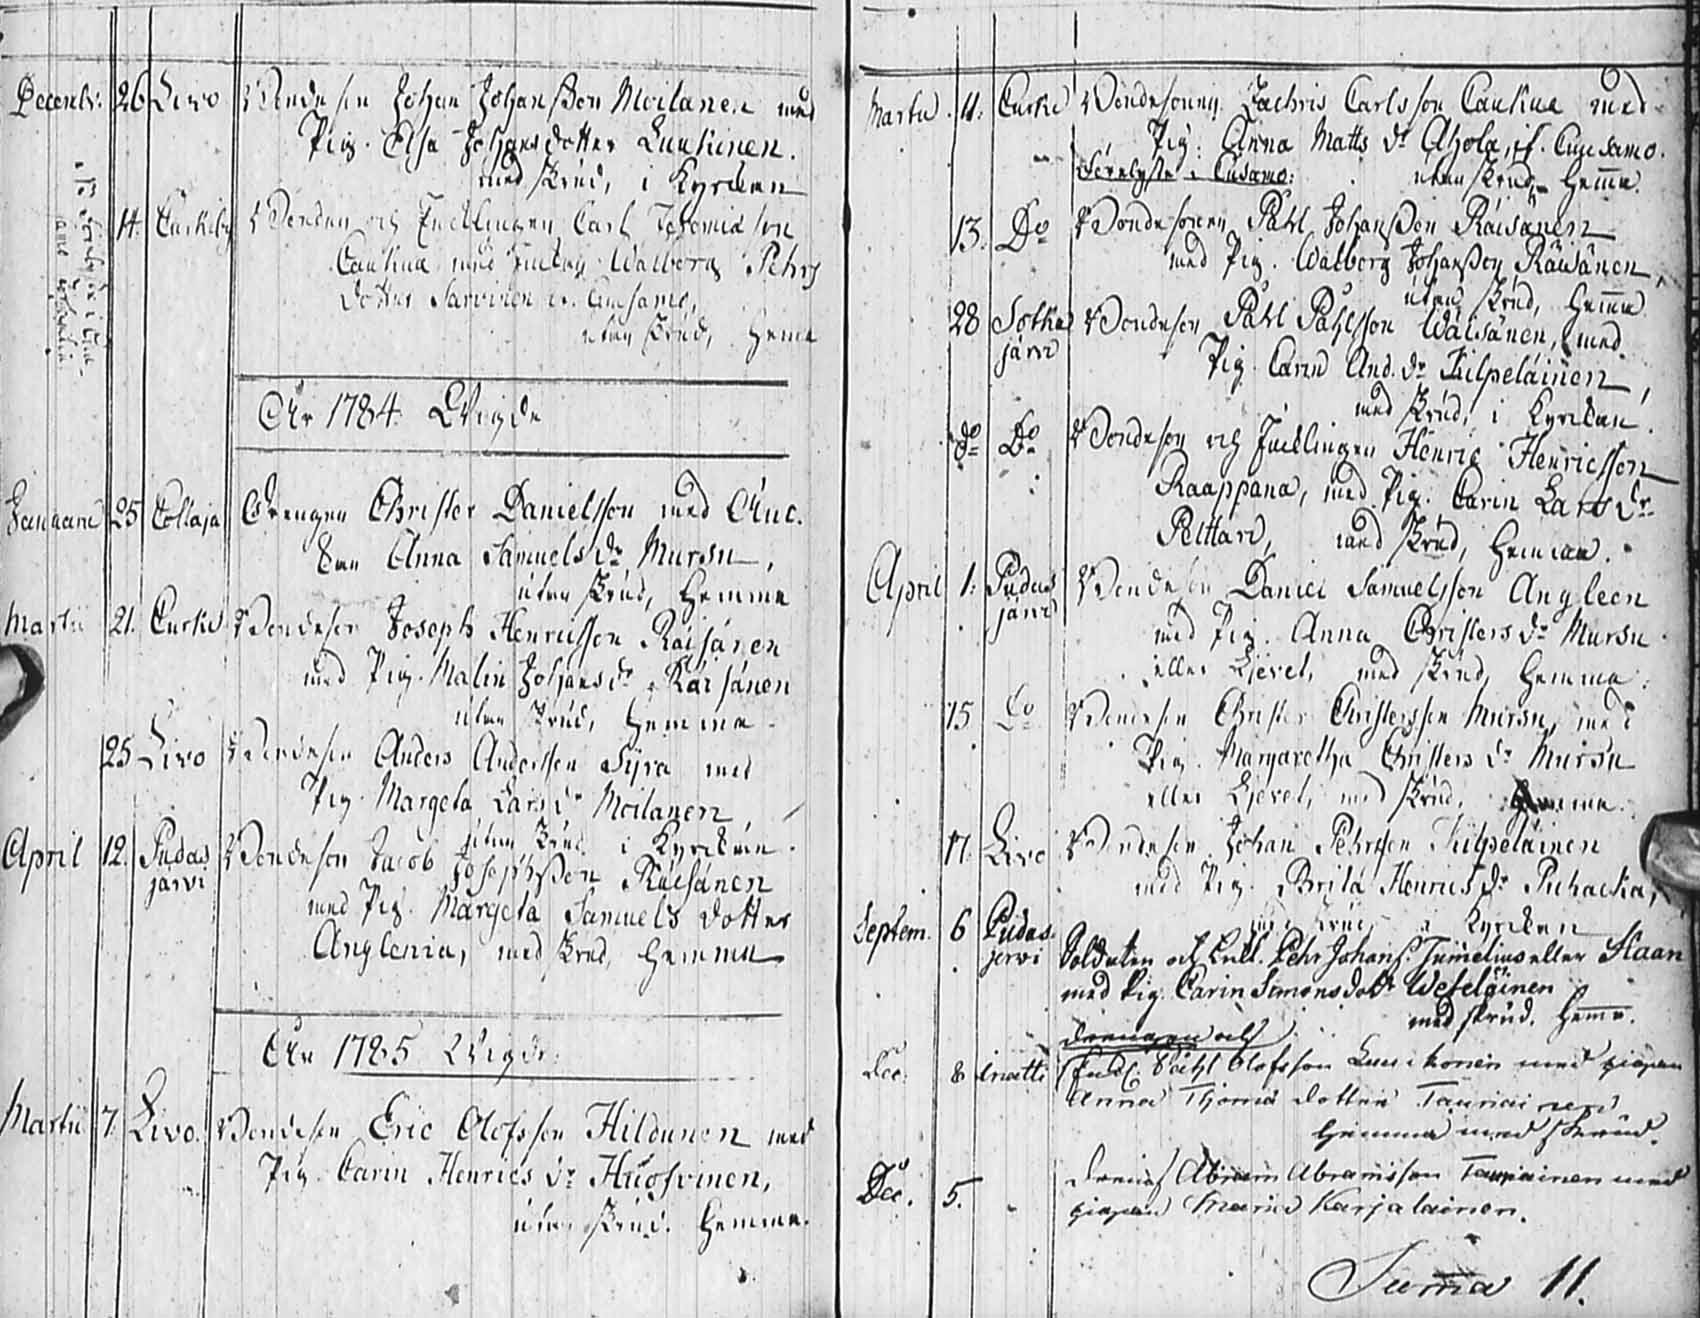 Decemb: 26 Livo Bondeson Johan Johansson Moilanen med
Pig. Elsa Johansdotter Luukinen.
med Skrud, i Kyrckan
14. Bonden och Carl Jeremiæ son
Caukua med Walborg Pehrs
dotter Sarvinen Cusamo,
utan Skrud, Hema
År 1784. Wigde
Januarii 25 Collaja Drengen Christer Danielsson med Änc.
kan Anna Samuels dr Mursu,
utan Skrud, Hemma
Martii 21. Curki Bondeson Joseph Henricsson Räisänen
med Pig. Malin Johans dr Räisänen
utan Skrud, Hemma.
25 Livo Bondeson Anders Andersson Syrä med
Pig. Margeta Lars dr Moilanen,
utan Skrud i Kyrckan.
April 12. Pudas
järvi Bondeson Jacob Josephsson Räisänen
med Pig. Margeta Samuels dotter
Anglenia, med Skrud, Hemma
År 1785 Wigde
Martii 7. Livo. Bondeson Eric Olofsson Hildunen med
Pig. Carin Henrics dr
utan Skrud. Hemma.
Martii 11. Curki Bondesonen Zachris Carlsson Caukua med
Pig. Anna Matts dr Ahola, if. Cuusamo.
i Cusamo: utan Skrud Hemma.
13. Do Bondesonen Påhl Johansson Räisänen
med Pig. Walborg Johansson Räisänen,
utan Skrud, Hemma
28 Sotka
järvi Bondeson Påhl Påhlsson Wäisänen, med
Pig. Carin And. dr Kilpeläinen,
med Skrud, i Kyrckan.
do Do Bondeson och Inhysingen Henric Henricsson
Raappana, med Pig. Carin Lars dr
Pelttari, med Skrud, Hemma.
April 1. Pudas
järvi Bondeson Daniel Samuelsson Angleen
med Pig. Anna Christers dr Mursu
eller Ljevet, med Skrud, Hemma.
15 Do Bondeson Christer Christersson Mursu, med
Pig. Margaretha Christers dr Mursu
eller Ljevet, med Skrud, Hemma.
17. Livo Bondeson Johan Pehrsson Kilpeläinen
med Pig. Brita Henrics dr Puhacka,
med Skrud, i Kyrckan
Septem. 6 Pudas
jerwi Soldaten och Pehr Johans. Tumelius eller Haan
med Pig. Carin Simonsdotr Weseläinen
med skrud. Hemm.
Drengen och
Dec. 8 Påhl Olofsson med pigan
Anna dotter Tauriainen
Hemma med skrud.
Dec. 5. Abram Abramsson Tauriainen med
pigan Maria Karjalainen.
Summa 11.